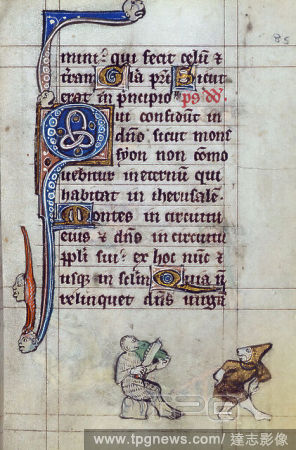 85
mini· qui fecit celū &
tram Glā pr̄i Sicut
erat in p̄ncipio ps dd̄.
Qui confidūt in
dn̄o sicut mons
syon non cōmo
uebitur in eternū qui
habitat in iherusalē.
Montes in circuitu
eius & dn̄s in circuitu
ppl̄i sui· ex hoc nūc &
usq; in sc̄lm Quia n̄
relinquet dn̄s uirgā
www.tpgnews.com/ 達志影像